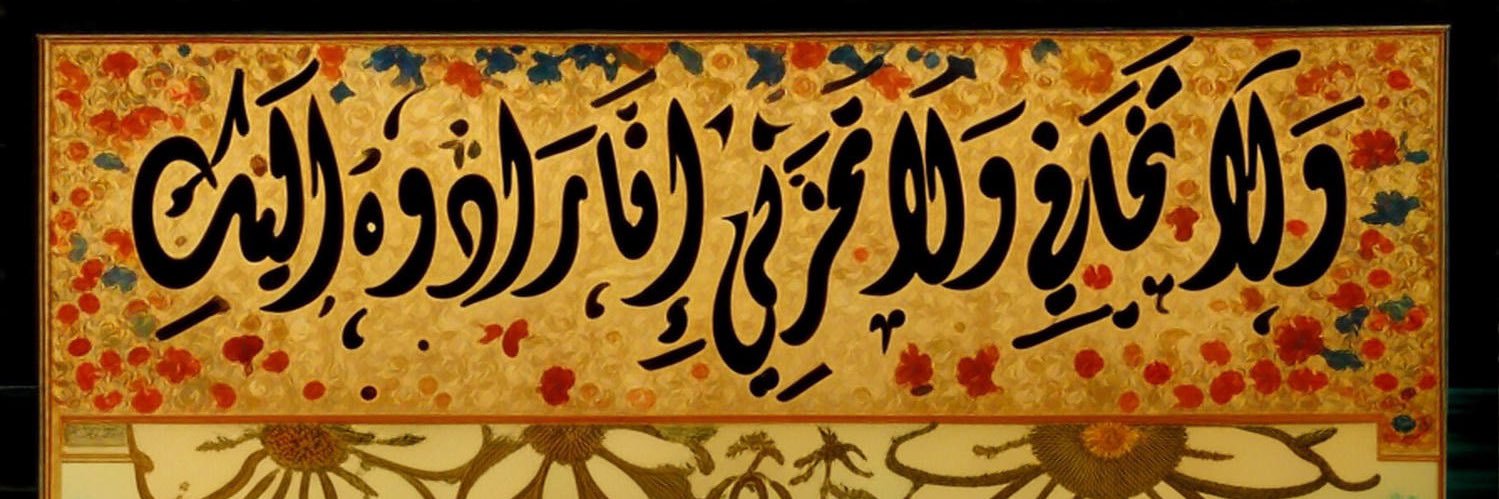 وَلَا تَخَافِي وَلَا تَحْزَنِي إِنَّا رَادُّوهُ إِلَيْكِ